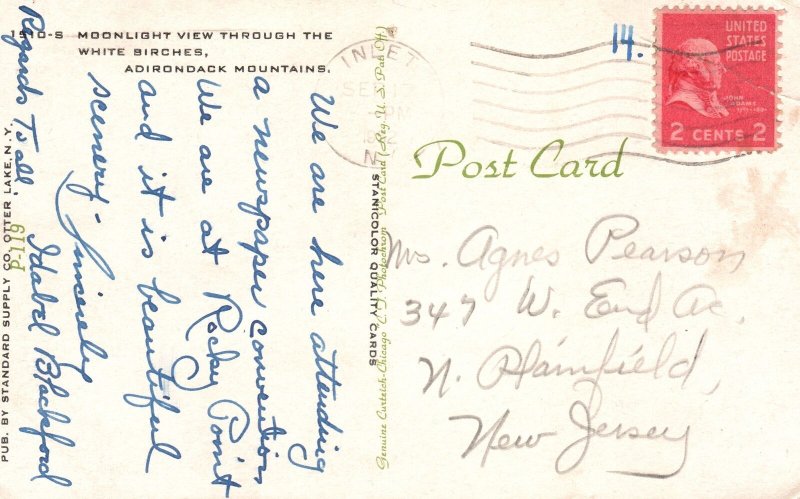 1S10-S MOONLIGHT VIEW THROUGH THE
WHITE BIRCHES,
ADIRONDACK MOUNTAINS.
We are here attending
a newspaper convention
We are at Rocky Point
and it is beautiful
scenery - Sincerely
Idabel Blackford
Regards To all.
PUB. BY STANDARD SUPPLY CO. OTTER LAKE, N.Y.
P-119
STANICOLOR QUALITY CARDS
Genuine Curteich-Chicago "C. T. Photochrom" Post Card (Reg. U. S. Pat. Off.)
INLET
SEP 17
PM
N
14.
UNITED
STATES
POSTAGE
JOHN
ADAMS
2 CENTS 2
Post Card
Mrs. Agnes Pearson
347 W. End Av.
N. Plainfield,
New Jersey